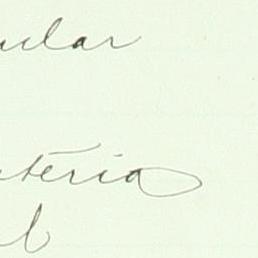 ular
teria
l